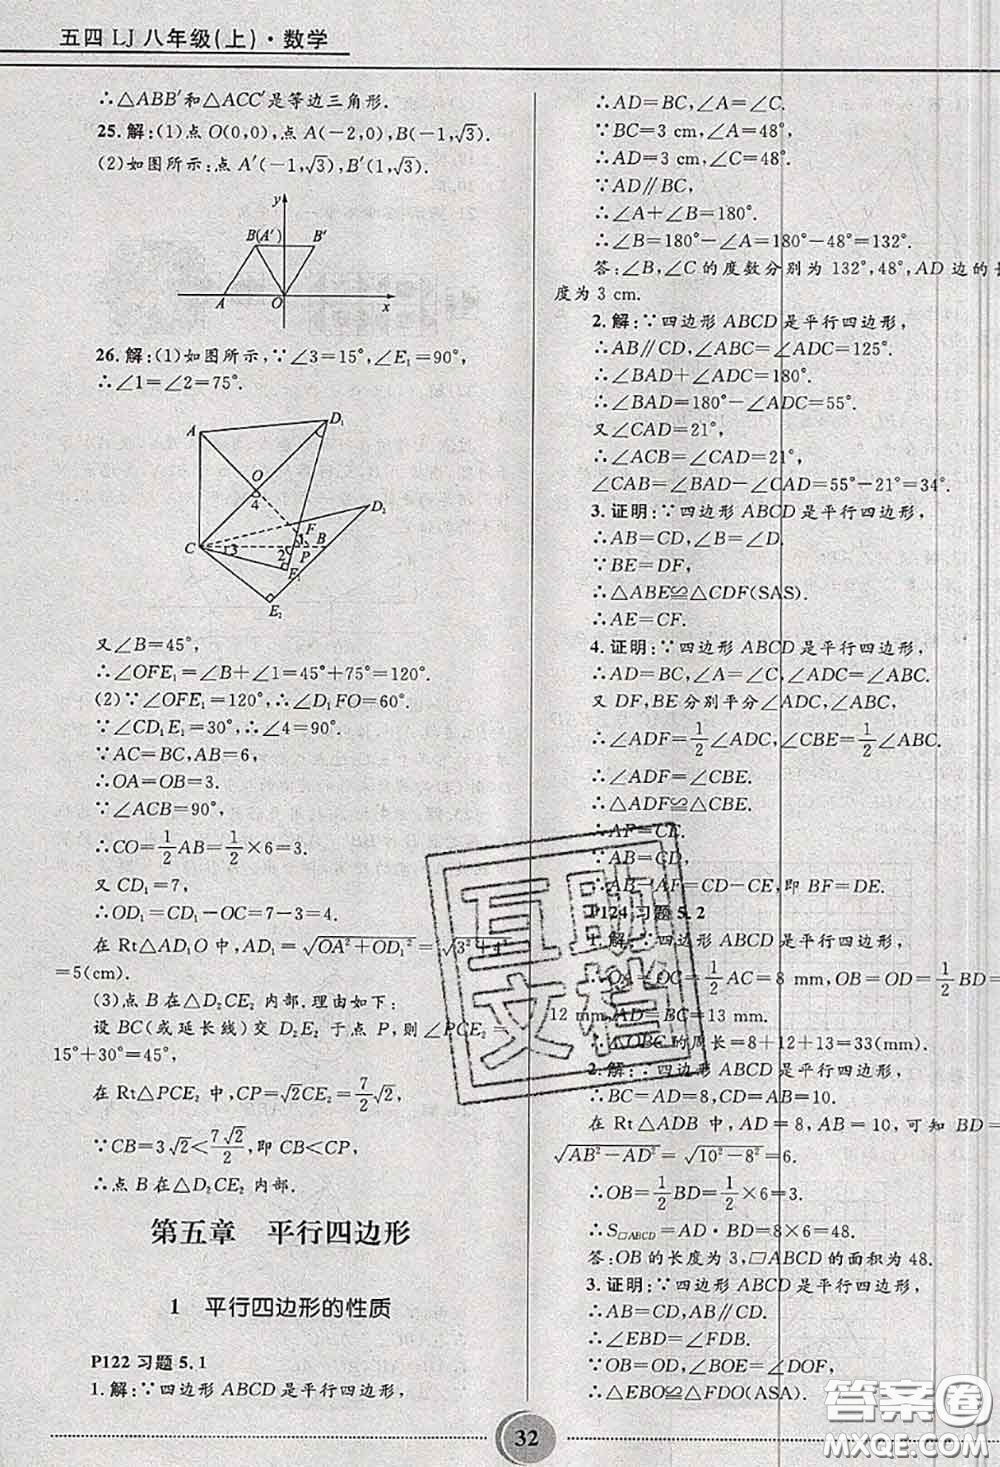 五四 LJ 八年级(上)·数学
∴△ABB′和△ACC′是等边三角形.
25.解:(1)点 O(0,0),点 A(-2,0),B(-1,√3).
(2)如图所示:点 A′(-1,√3),B′(1,√3).
y
B(A′) B′
A O x
26.解:(1)如图所示,∵∠3=15°,∠E₁=90°,
∴∠1=∠2=75°.
A D₁
O
4
D₂
F
C 3 2 1 P B
E₁
E₂
又∠B=45°,
∴∠OFE₁=∠B+∠1=45°+75°=120°.
(2)∵∠OFE₁=120°,∴∠D₁FO=60°.
∵∠CD₁E₁=30°,∴∠4=90°.
∵AC=BC,AB=6,
∴OA=OB=3.
∵∠ACB=90°,
∴CO=1/2AB=1/2×6=3.
又 CD₁=7,
∴OD₁=CD₁-OC=7-3=4.
在 Rt△AD₁O 中,AD₁=√(OA²+OD₁²)=√(3²+4²)
=5(cm).
(3)点 B 在△D₂CE₂ 内部.理由如下:
设 BC(或延长线)交 D₂E₂ 于点 P,则∠PCE₂=
15°+30°=45°,
在 Rt△PCE₂ 中,CP=√2CE₂=7/2√2,
∵CB=3√2<7√2/2,即 CB<CP,
∴点 B 在△D₂CE₂ 内部.
第五章 平行四边形
1 平行四边形的性质
P122 习题 5.1
1.解:∵四边形 ABCD 是平行四边形,
∴AD=BC,∠A=∠C.
∵BC=3 cm,∠A=48°,
∴AD=3 cm,∠C=48°.
∵AD∥BC,
∴∠A+∠B=180°.
∴∠B=180°-∠A=180°-48°=132°.
答:∠B,∠C 的度数分别为 132°,48°,AD 边的长
度为 3 cm.
2.解:∵四边形 ABCD 是平行四边形,
∴AB∥CD,∠ABC=∠ADC=125°.
∴∠BAD+∠ADC=180°.
∴∠BAD=180°-∠ADC=55°.
又∠CAD=21°,
∴∠ACB=∠CAD=21°,
∠CAB=∠BAD-∠CAD=55°-21°=34°.
3.证明:∵四边形 ABCD 是平行四边形,
∴AB=CD,∠B=∠D.
∵BE=DF,
∴△ABE≌△CDF(SAS).
∴AE=CF.
4.证明:∵四边形 ABCD 是平行四边形,
∴AD=BC,∠A=∠C,∠ADC=∠ABC.
又 DF,BE 分别平分∠ADC,∠ABC,
∴∠ADF=1/2∠ADC,∠CBE=1/2∠ABC.
∴∠ADF=∠CBE.
∴△ADF≌△CBE.
∴AF=CE.
∵AB=CD,
∴AB-AF=CD-CE,即 BF=DE.
P124 习题 5.2
1.解:∵四边形 ABCD 是平行四边形,
∴OA=OC=1/2AC=8 mm,OB=OD=1/2BD=
12 mm,AD=BC=13 mm.
∴△OBC 的周长=8+12+13=33(mm).
2.解:∵四边形 ABCD 是平行四边形,
∴BC=AD=8,CD=AB=10.
在 Rt△ADB 中,AD=8,AB=10,可知 BD=
√(AB²-AD²)=√(10²-8²)=6.
∴OB=1/2BD=1/2×6=3.
∴S▱ABCD=AD·BD=8×6=48.
答:OB 的长度为 3,▱ABCD 的面积为 48.
3.证明:∵四边形 ABCD 是平行四边形,
∴AB=CD,AB∥CD.
∴∠EBD=∠FDB.
∵OB=OD,∠BOE=∠DOF,
∴△EBO≌△FDO(ASA).
32
互助文档
答案圈
MXQE.COM